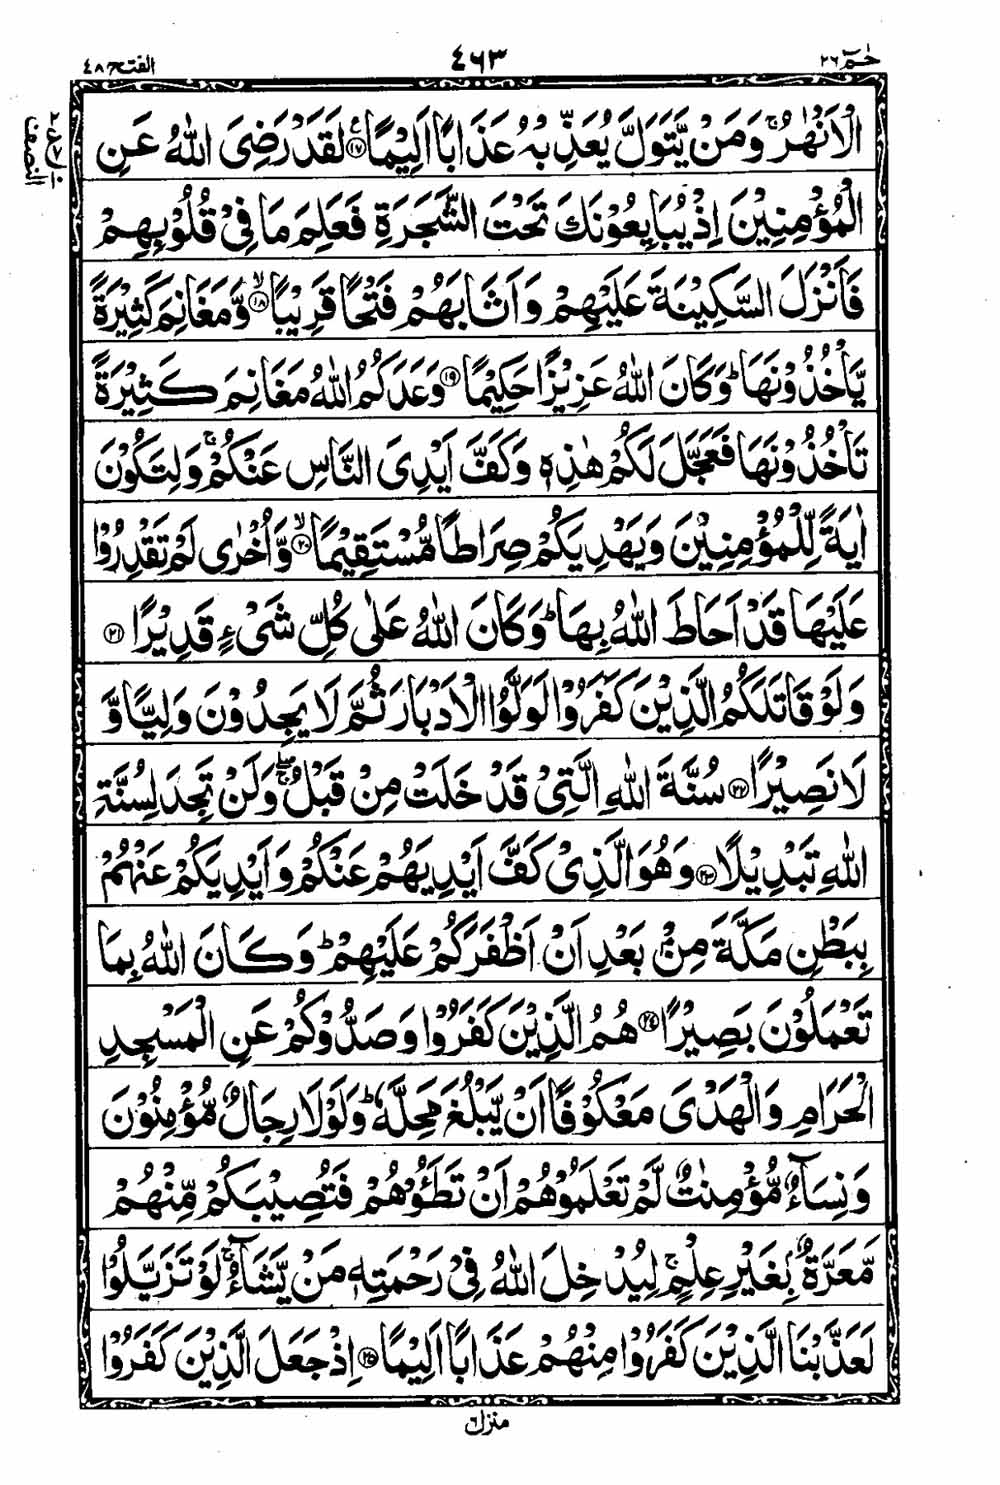 الفتح ٤٨ ٤٦٣ حٰمٓ ٢٦
الْاَنْهٰرُ ۚ وَمَنْ يَّتَوَلَّ يُعَذِّبْهُ عَذَابًا اَلِيْمًا ۝١٧ لَقَدْ رَضِىَ اللّٰهُ عَنِ
الْمُؤْمِنِيْنَ اِذْ يُبَايِعُوْنَكَ تَحْتَ الشَّجَرَةِ فَعَلِمَ مَا فِىْ قُلُوْبِهِمْ
فَاَنْزَلَ السَّكِيْنَةَ عَلَيْهِمْ وَاَثَابَهُمْ فَتْحًا قَرِيْبًا ۙ۝١٨ وَّمَغَانِمَ كَثِيْرَةً
يَّاْخُذُوْنَهَا ؕ وَكَانَ اللّٰهُ عَزِيْزًا حَكِيْمًا ۝١٩ وَعَدَكُمُ اللّٰهُ مَغَانِمَ كَثِيْرَةً
تَاْخُذُوْنَهَا فَعَجَّلَ لَكُمْ هٰذِهٖ وَكَفَّ اَيْدِىَ النَّاسِ عَنْكُمْ ۚ وَلِتَكُوْنَ
اٰيَةً لِّلْمُؤْمِنِيْنَ وَيَهْدِيَكُمْ صِرَاطًا مُّسْتَقِيْمًا ۙ۝٢٠ وَّاُخْرٰى لَمْ تَقْدِرُوْا
عَلَيْهَا قَدْ اَحَاطَ اللّٰهُ بِهَا ؕ وَكَانَ اللّٰهُ عَلٰى كُلِّ شَىْءٍ قَدِيْرًا ۝٢١
وَلَوْ قَاتَلَكُمُ الَّذِيْنَ كَفَرُوْا لَوَلَّوُا الْاَدْبَارَ ثُمَّ لَا يَجِدُوْنَ وَلِيًّا وَّ
لَا نَصِيْرًا ۝٢٢ سُنَّةَ اللّٰهِ الَّتِىْ قَدْ خَلَتْ مِنْ قَبْلُ ۖۚ وَلَنْ تَجِدَ لِسُنَّةِ
اللّٰهِ تَبْدِيْلًا ۝٢٣ وَهُوَ الَّذِىْ كَفَّ اَيْدِيَهُمْ عَنْكُمْ وَاَيْدِيَكُمْ عَنْهُمْ
بِبَطْنِ مَكَّةَ مِنْۢ بَعْدِ اَنْ اَظْفَرَكُمْ عَلَيْهِمْ ؕ وَكَانَ اللّٰهُ بِمَا
تَعْمَلُوْنَ بَصِيْرًا ۝٢٤ هُمُ الَّذِيْنَ كَفَرُوْا وَصَدُّوْكُمْ عَنِ الْمَسْجِدِ
الْحَرَامِ وَالْهَدْىَ مَعْكُوْفًا اَنْ يَّبْلُغَ مَحِلَّهٗ ؕ وَلَوْلَا رِجَالٌ مُّؤْمِنُوْنَ
وَنِسَآءٌ مُّؤْمِنٰتٌ لَّمْ تَعْلَمُوْهُمْ اَنْ تَطَـُٔوْهُمْ فَتُصِيْبَكُمْ مِّنْهُمْ
مَّعَرَّةٌۢ بِغَيْرِ عِلْمٍ ۚ لِيُدْخِلَ اللّٰهُ فِىْ رَحْمَتِهٖ مَنْ يَّشَآءُ ۚ لَوْ تَزَيَّلُوْا
لَعَذَّبْنَا الَّذِيْنَ كَفَرُوْا مِنْهُمْ عَذَابًا اَلِيْمًا ۝٢٥ اِذْ جَعَلَ الَّذِيْنَ كَفَرُوْا
منزل ٦
النصف